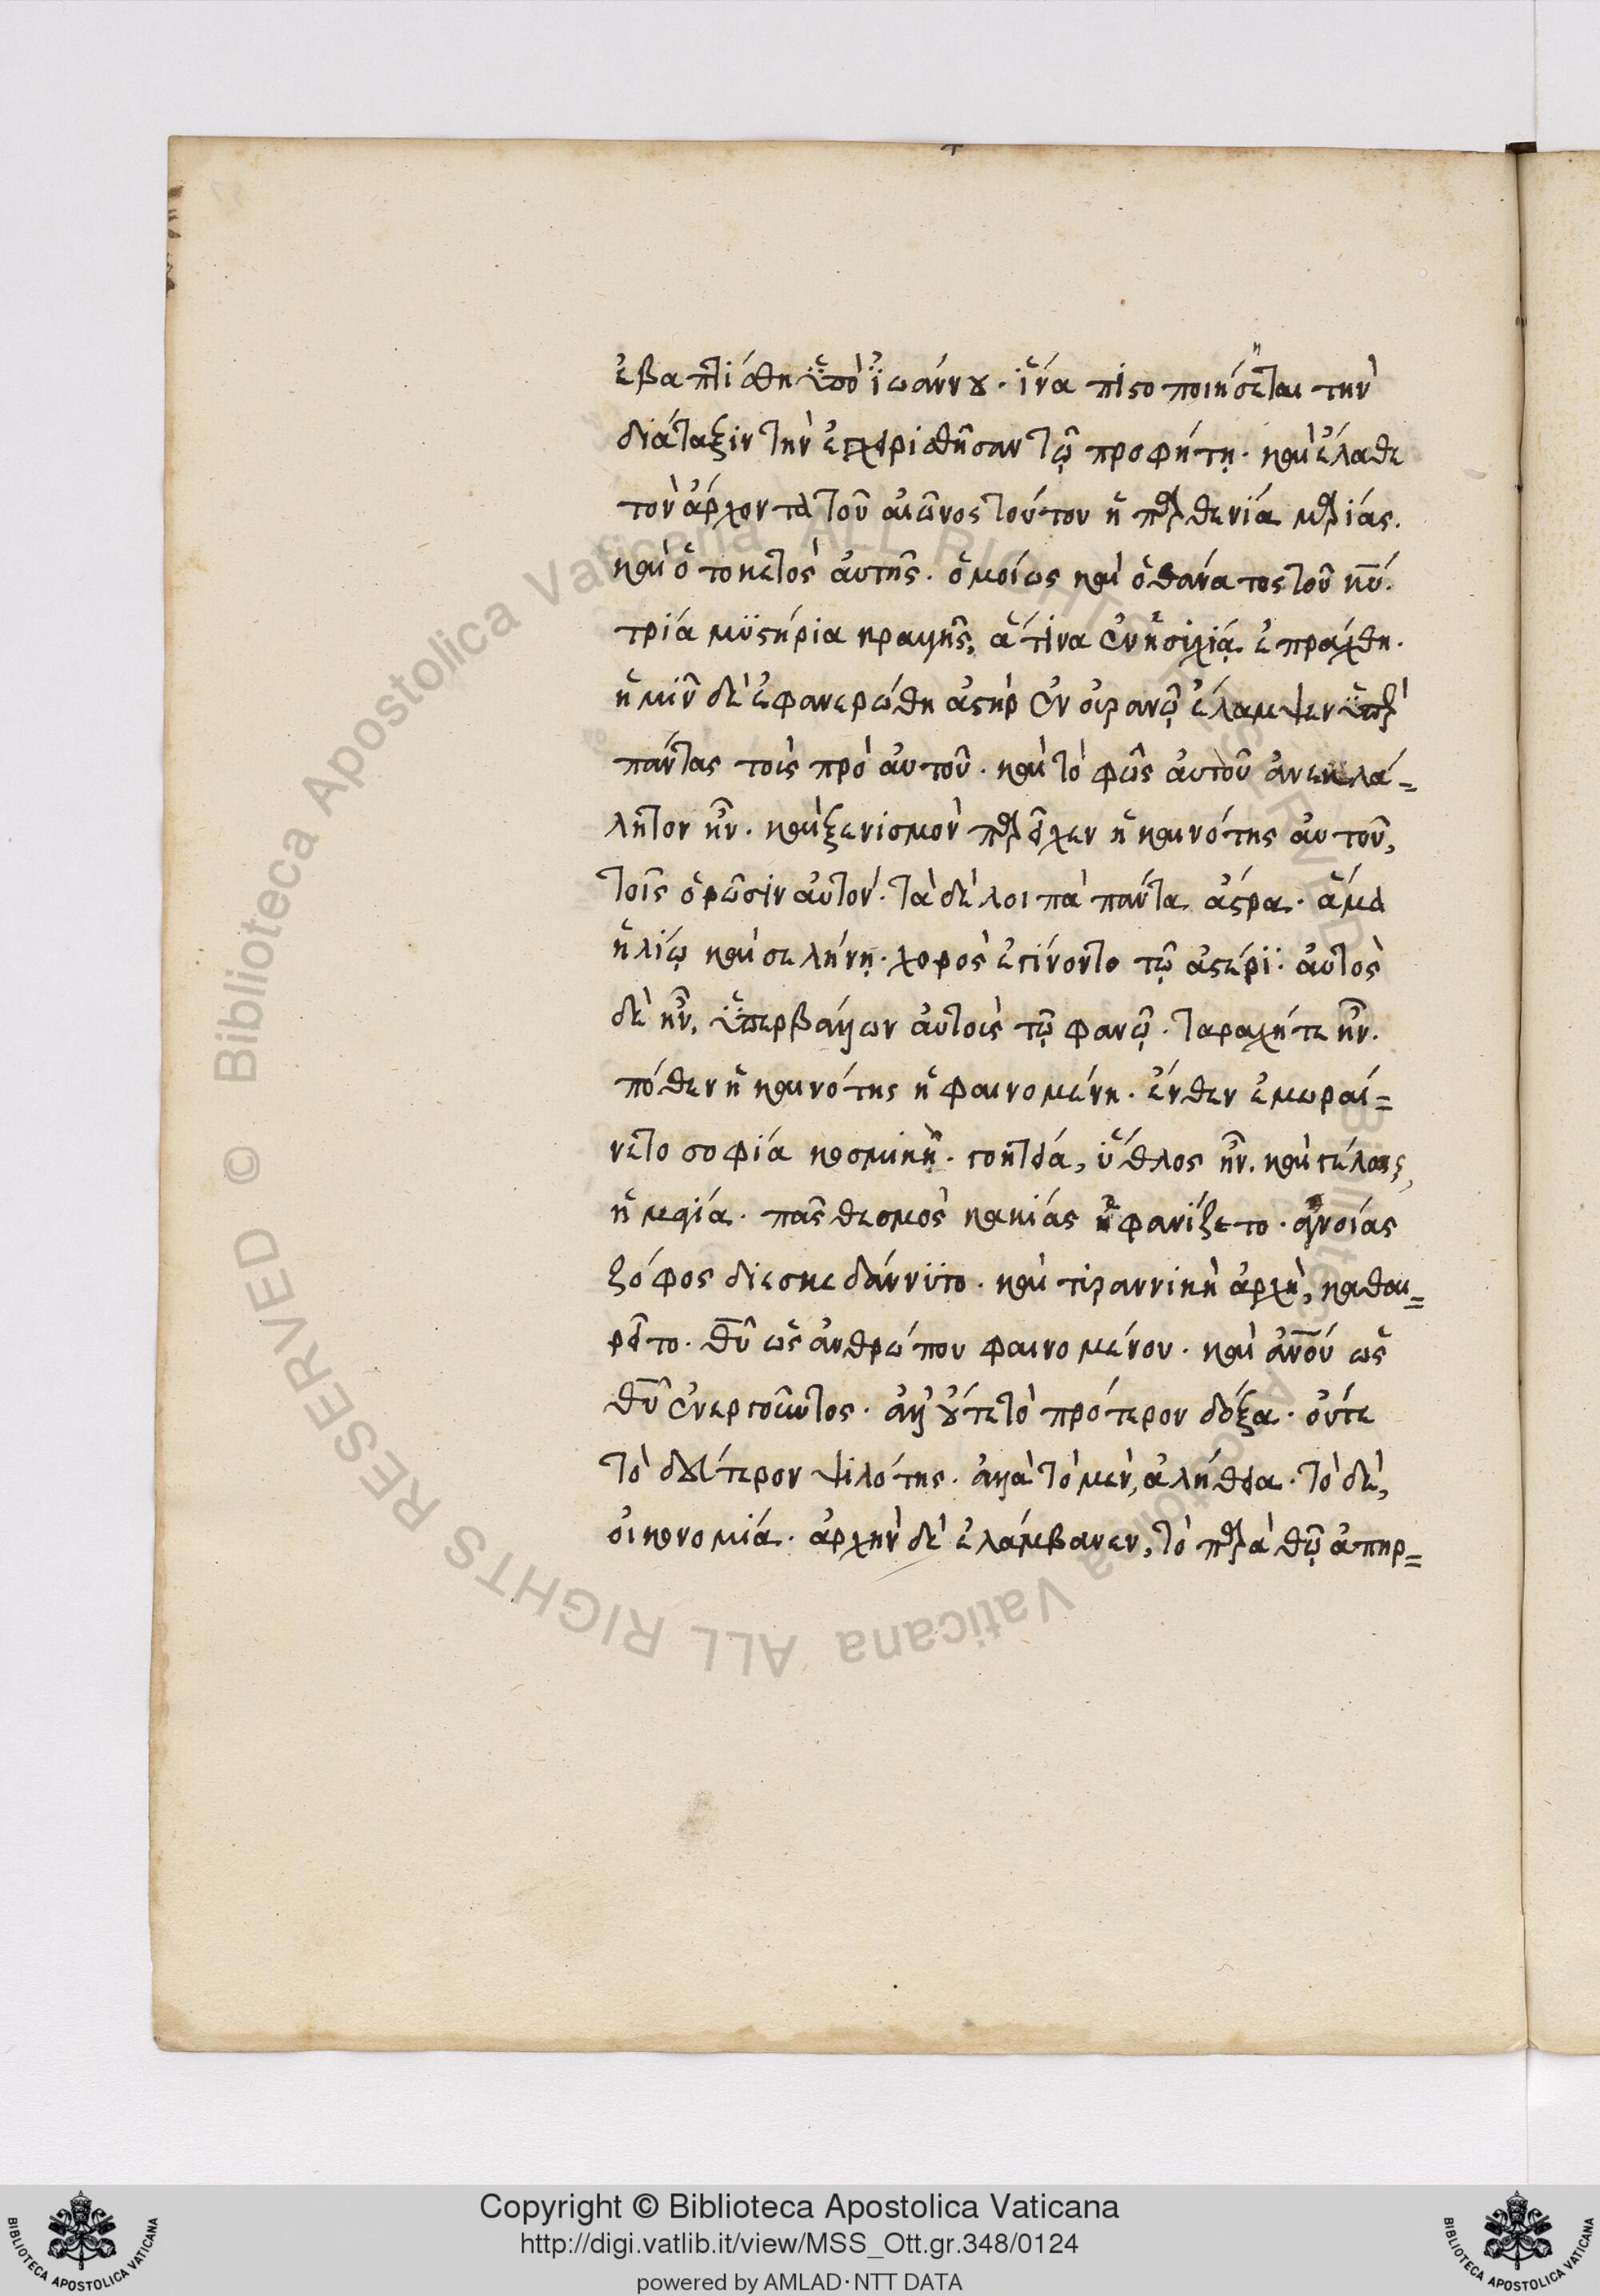 ἐβαπτίσθη ὑπὸ ἰωάννου· ἵνα πιστοποιήσηται τὴν
διάταξιν τὴν ἐγχειρισθῆσαν τῷ προφήτῃ· καὶ ἔλαθε
τὸν ἄρχοντα τοῦ αἰῶνος τούτου ἡ παρθενία μαρίας.
καὶ ὁ τοκετὸς ἀυτῆς· ὁμοίως καὶ ὁ θάνατος τοῦ κ̅υ̅.
τρία μυστήρια κραυγῆς, ἅτινα ἐν ἡσυχίᾳ ἐπράχθη.
ἡμῖν δὲ ἐφανερώθη ἀστὴρ ἐν οὐρανῷ ἔλαμψεν ὑπὲρ
πάντας τοὺς πρὸ ἀυτοῦ· καὶ τὸ φῶς ἀυτοῦ ἀνεκλά=
λητον ἦν· καὶ ξενισμὸν παρεῖχεν ἡ καινότης ἀυτοῦ,
τοῖς ὁρῶσιν ἀυτόν· τὰ δὲ λοιπὰ πάντα ἄστρα· ἅμα
ἡλίῳ καὶ σελήνῃ· χορὸς ἐγίνοντο τῷ ἀστέρι· ἀυτὸς
δὲ ἦν, ὑπερβάλλων ἀυτοὺς τῷ φανῷ· ταραχήτε ἦν.
πόθεν ἡ καινότης ἡ φαινομένη· ἔνθεν ἐμωραί=
νετο σοφία κοσμικὴ· γοητεία, ὕθλος ἦν· καὶ γέλως,
ἡ μαγία· πᾶς θεσμὸς κακίας ἠφανίζετο· ἀγνοίας
ζόφος διεσκεδάννυτο· καὶ τυραννικὴ ἀρχὴ, καθαι=
ρεῖτο· θ̅υ̅ ὡς ἀνθρώπου φαινομένου· καὶ ἀ̅ν̅ο̅υ̅ ὡς
θ̅υ̅ ἐνεργοῦντος· ἀλλ' οὔτε τὸ πρότερον δόξα· ὀύτε
τὸ δεύτερον ψιλότης· ἀλλὰ τὸ μεν, ἀλήθεια· τὸ δὲ,
ὀικονομία· ἀρχὴν δὲ ἐλάμβανεν, τὸ παρὰ θῷ ἀπηρ=
Copyright © Biblioteca Apostolica Vaticana
http://digi.vatlib.it/view/MSS_Ott.gr.348/0124
powered by AMLAD·NTT DATA